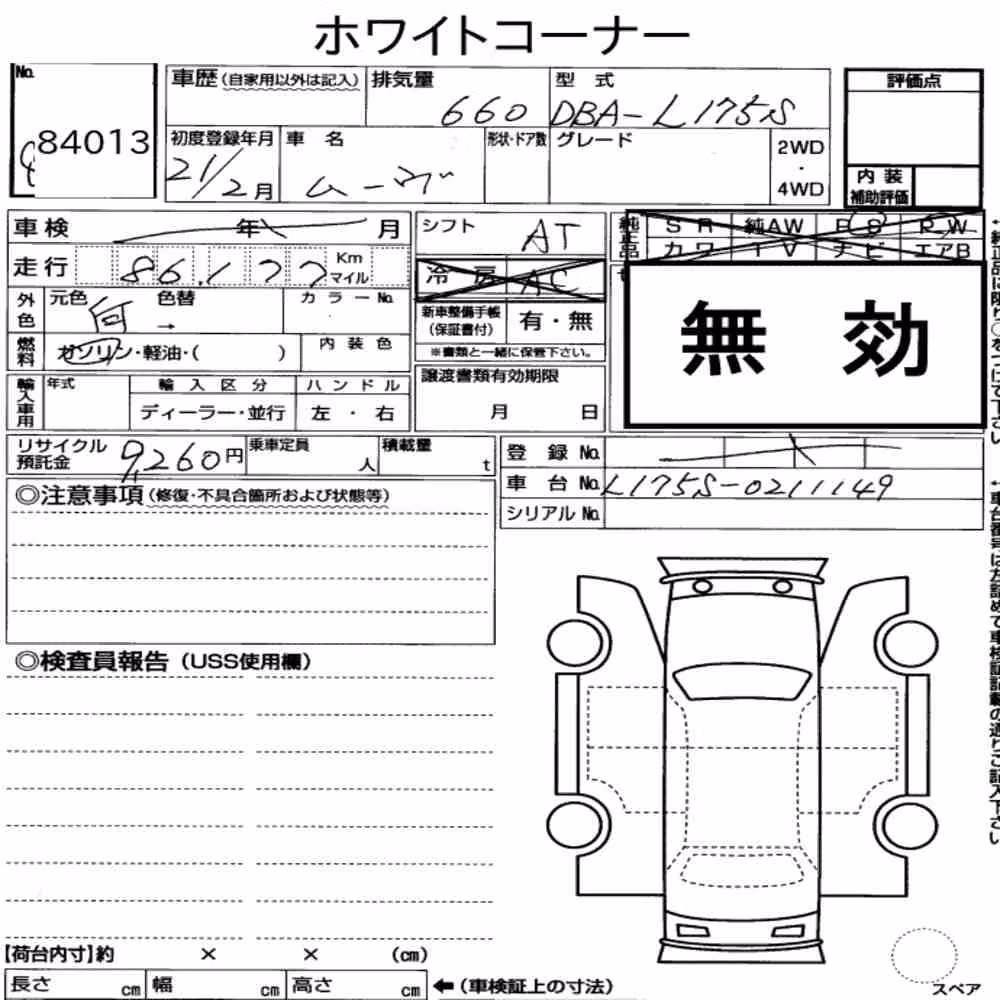 ホワイトコーナー
No.
84013
車歴(自家用以外は記入)
排気量
660
型 式
DBA-L175S
初度登録年月
21/2月
車 名
ムーヴ
形状・ドア数
グレード
2WD
・
4WD
評価点
内 装
補助評価
車検 年 月
走行 86,177 Km
マイル
外色
元色 色替
何 →
カラーNo.
燃料
ガソリン・軽油・( )
内 装 色
輸入車用
年式
輸 入 区 分
ディーラー・並行
ハ ン ド ル
左 ・ 右
シフト
AT
冷 房 AC
新車整備手帳
(保証書付)
有・無
※書類と一緒に保管下さい。
譲渡書類有効期限
月 日
純正品
S R 純AW P S P W
カ ワ T V ナ ビ エアB
無 効
リサイクル
預託金
9,260円
乗車定員
人
積載量
t
登 録 No.
車 台 No. L175S-0211149
シリアル No.
◎注意事項(修復・不具合箇所および状態等)
◎検査員報告(USS使用欄)
【荷台内寸】約 × × (cm)
長さ cm 幅 cm 高さ cm ←(車検証上の寸法)
スペア
↑車台番号は左詰めで車検証記載の通りご記入下さい